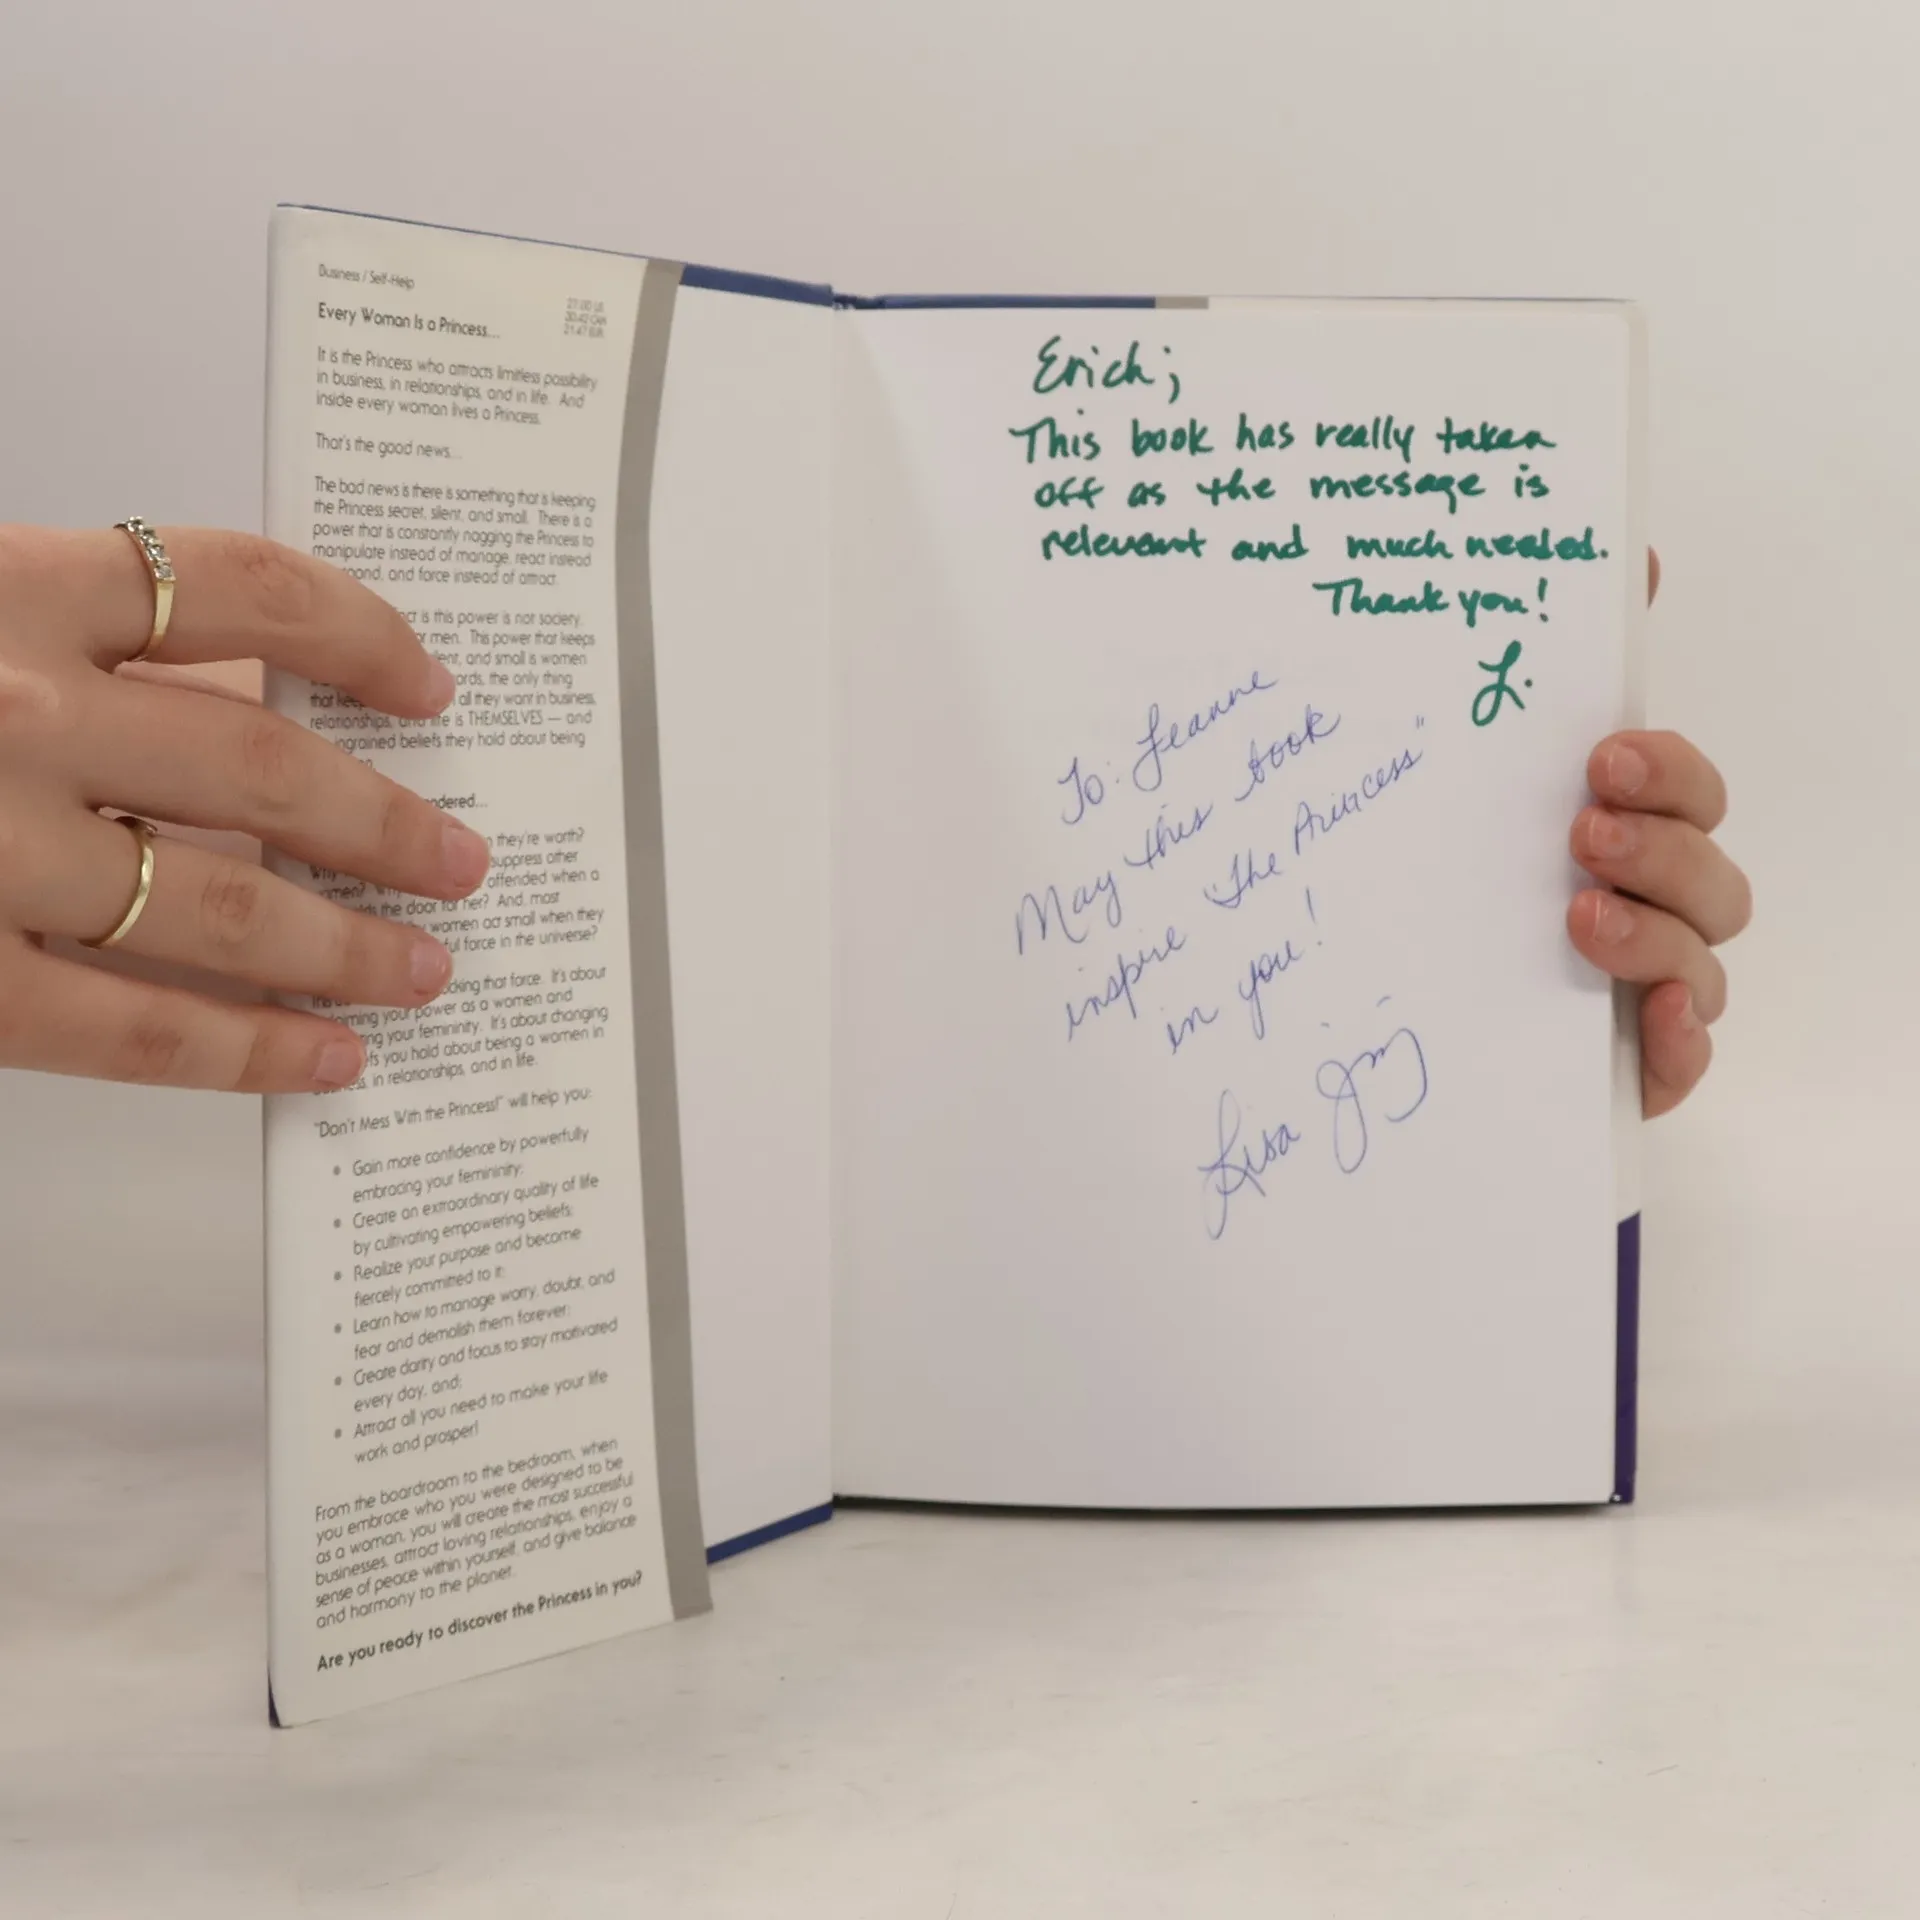 Business / Self-Help
27.00 US
30.42 CAN
21.47 EUR
Every Woman Is a Princess...
It is the Princess who attracts limitless possibility
in business, in relationships, and in life. And
inside every woman lives a Princess.
That's the good news...
The bad news is there is something that is keeping
the Princess secret, silent, and small. There is a
power that is constantly nagging the Princess to
manipulate instead of manage, react instead
and, and force instead of attract.
is this power is not society.
men. This power that keeps
and small is women
the only thing
that all they want in business,
relationships, and life is THEMSELVES — and
ingrained beliefs they hold about being
they're worth?
suppress other
offended when a
the door for her? And, most
women act small when they
force in the universe?
that force. It's about
your power as a women and
your femininity. It's about changing
you hold about being a women in
in relationships, and in life.
"Don't Mess With the Princess!" will help you:
• Gain more confidence by powerfully
embracing your femininity;
• Create an extraordinary quality of life
by cultivating empowering beliefs;
• Realize your purpose and become
fiercely committed to it;
• Learn how to manage worry, doubt, and
fear and demolish them forever;
• Create clarity and focus to stay motivated
every day, and;
• Attract all you need to make your life
work and prosper!
From the boardroom to the bedroom, when
you embrace who you were designed to be
as a woman, you will create the most successful
businesses, attract loving relationships, enjoy a
sense of peace within yourself, and give balance
and harmony to the planet.
Are you ready to discover the Princess in you?
Erich;
This book has really taken
off as the message is
relevant and much needed.
Thank you!
L.
To: Leanne
May this book
inspire "The Princess"
in you!
Lisa